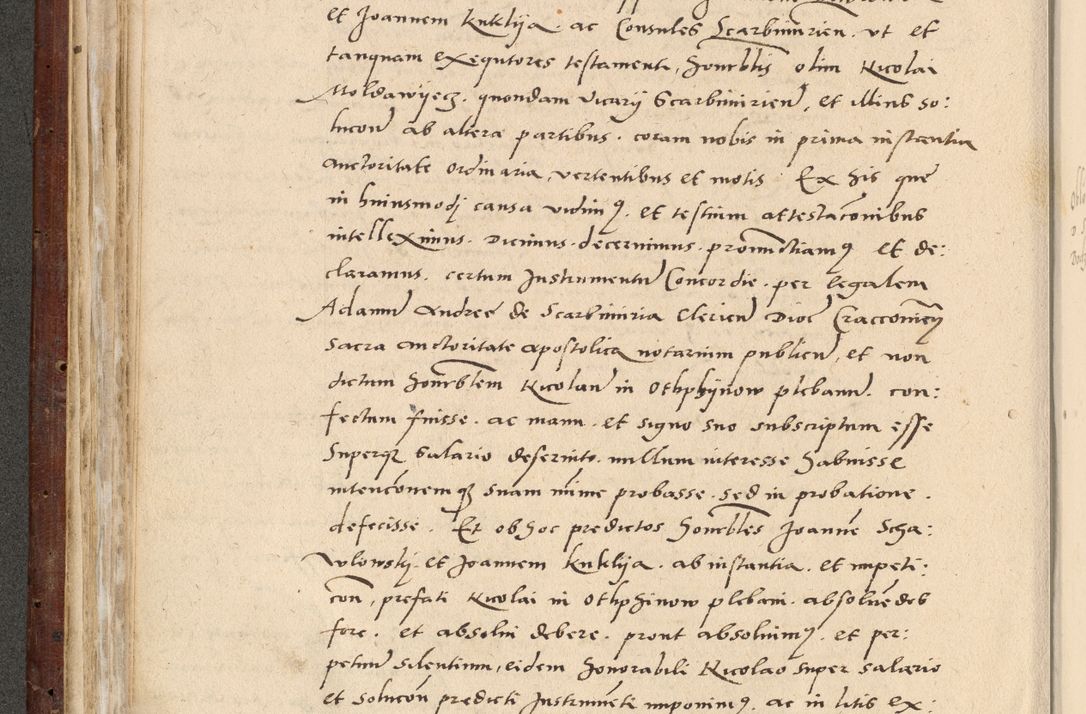 et Joannem Kuklija. ac Consules Scarbimirien. vt et
tanquam exequtores testamenti, honorblis olim Nicolai
Moldawijecz. quondam vicarij Scarbimirien, et illius so:
lucon ab altera partibus. coram nobis in prima instantia
auctoritate ordinaria, vertentibus et motis. Ex his que
in huiusmodj causa vidimus. et testium attestaconibus
intelleximus. Dicimus. decernimus. pronunctiamus et de:
claramus. certum Instrumentu Concordie. per legalem
Adamu Andree de Scarbimiria Clericu Dioc Craccouien
Sacra auctoritate apostolica notarium publicu, et non
dictum honorblem Nicolau in Othphijnow plebanu. con:
fectum fuisse. ac manu. et signo suo subscriptum esse
Superque salario deseruito. nullum interesse habuisse
intenconemque suam mime probasse. sed in probatione.
defecisse. Et ob hoc predictos honorbles Joanne Scha:
wlowskj. et Joannem Kuklija. ab instantia. et impeti:
con, prefati Nicolai in Othphinow plebani. absoluedos
fore. et absolui debere. prout absoluimus. et per:
petuu silentium, eidem honorabili Nicolao super salario
et solucon predicti Instrumeti imponimus. ac in litis ex: